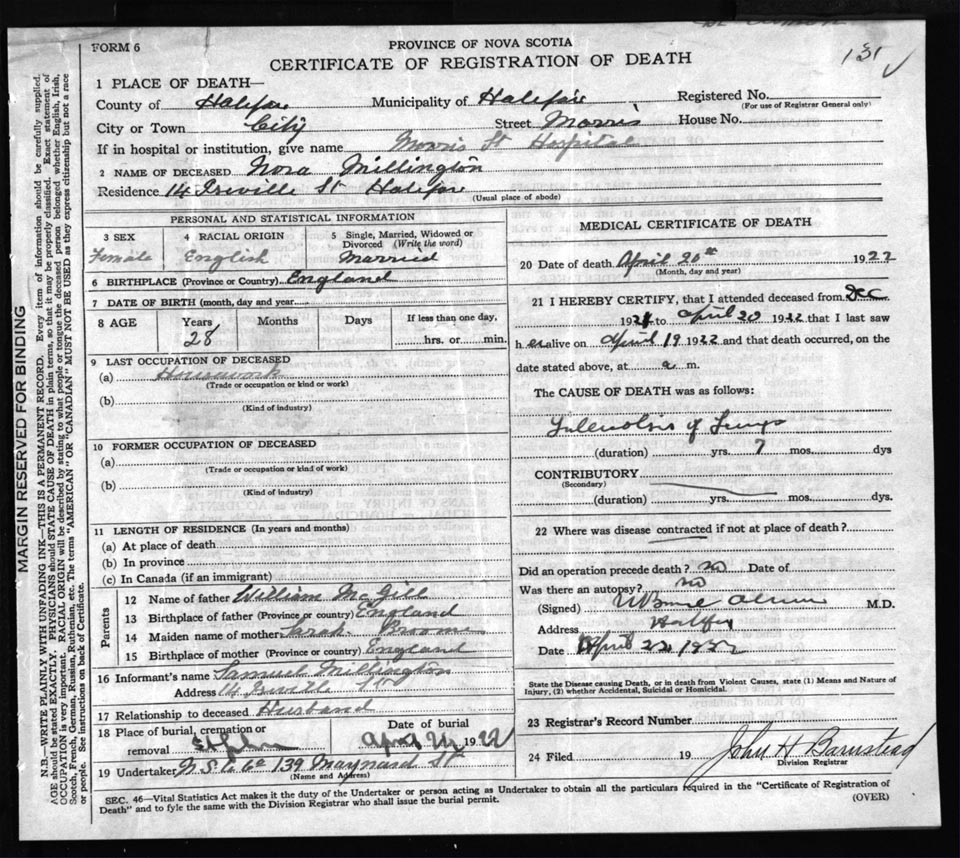 FORM 6
PROVINCE OF NOVA SCOTIA
CERTIFICATE OF REGISTRATION OF DEATH
131 ✓
1 PLACE OF DEATH—
County of Halifax Municipality of Halifax Registered No.
(For use of Registrar General only)
City or Town City Street Morris House No.
If in hospital or institution, give name Morris St Hospital
2 NAME OF DECEASED Nora Millington
Residence 14 St Halifax
(Usual place of abode)
PERSONAL AND STATISTICAL INFORMATION
3 SEX
Female
4 RACIAL ORIGIN
English
5 Single, Married, Widowed or Divorced (Write the word)
Married
6 BIRTHPLACE (Province or Country) England
7 DATE OF BIRTH (month, day and year)
8 AGE Years Months Days If less than one day,
28 hrs. or min.
9 LAST OCCUPATION OF DECEASED
(a) Housework
(Trade or occupation or kind or work)
(b)
(Kind of industry)
10 FORMER OCCUPATION OF DECEASED
(a)
(Trade or occupation or kind of work)
(b)
(Kind of industry)
11 LENGTH OF RESIDENCE (In years and months)
(a) At place of death
(b) In province
(c) In Canada (if an immigrant)
Parents
12 Name of father William McGill
13 Birthplace of father (Province or country) England
14 Maiden name of mother Sarah
15 Birthplace of mother (Province or country) England
16 Informant's name Samuel Millington
Address 14
17 Relationship to deceased Husband
18 Place of burial, cremation or removal St Johns
Date of burial
April 24 1922
19 Undertaker N.S. U Co 139 Maynard St
(Name and Address)
MEDICAL CERTIFICATE OF DEATH
20 Date of death April 20th 1922
(Month, day and year)
21 I HEREBY CERTIFY, that I attended deceased from Dec
1921 to April 20 1922 that I last saw
h er alive on April 19 1922 and that death occurred, on the
date stated above, at a m.
The CAUSE OF DEATH was as follows:
Tuberculosis of Lungs
(duration) yrs. 7 mos. dys
CONTRIBUTORY
(Secondary)
(duration) yrs. mos. dys.
22 Where was disease contracted if not at place of death?
Did an operation precede death? no Date of
Was there an autopsy? no
(Signed) M.D.
Address Halifax
Date April 22 1922
State the Disease causing Death, or in death from Violent Causes, state (1) Means and Nature of
Injury, (2) whether Accidental, Suicidal or Homicidal.
23 Registrar's Record Number
24 Filed 19 John H Barnstead
Division Registrar
SEC. 46—Vital Statistics Act makes it the duty of the Undertaker or person acting as Undertaker to obtain all the particulars required in the "Certificate of Registration of
Death" and to fyle the same with the Division Registrar who shall issue the burial permit. (OVER)
MARGIN RESERVED FOR BINDING
N.B.—WRITE PLAINLY WITH UNFADING INK—THIS IS A PERMANENT RECORD. Every item of information should be carefully supplied.
AGE should be stated EXACTLY. PHYSICIANS should STATE CAUSE OF DEATH in plain terms, so that it may be properly classified. Exact statement of
OCCUPATION is very important. RACIAL ORIGIN will be described by stating to what people or tongue the deceased person belonged whether English, Irish,
Scotch, French, German, Russian, Ruthenian, etc. The terms "AMERICAN" OR "CANADIAN" MUST NOT BE USED as they express citizenship but not a race
or people. See instructions on back of Certificate.